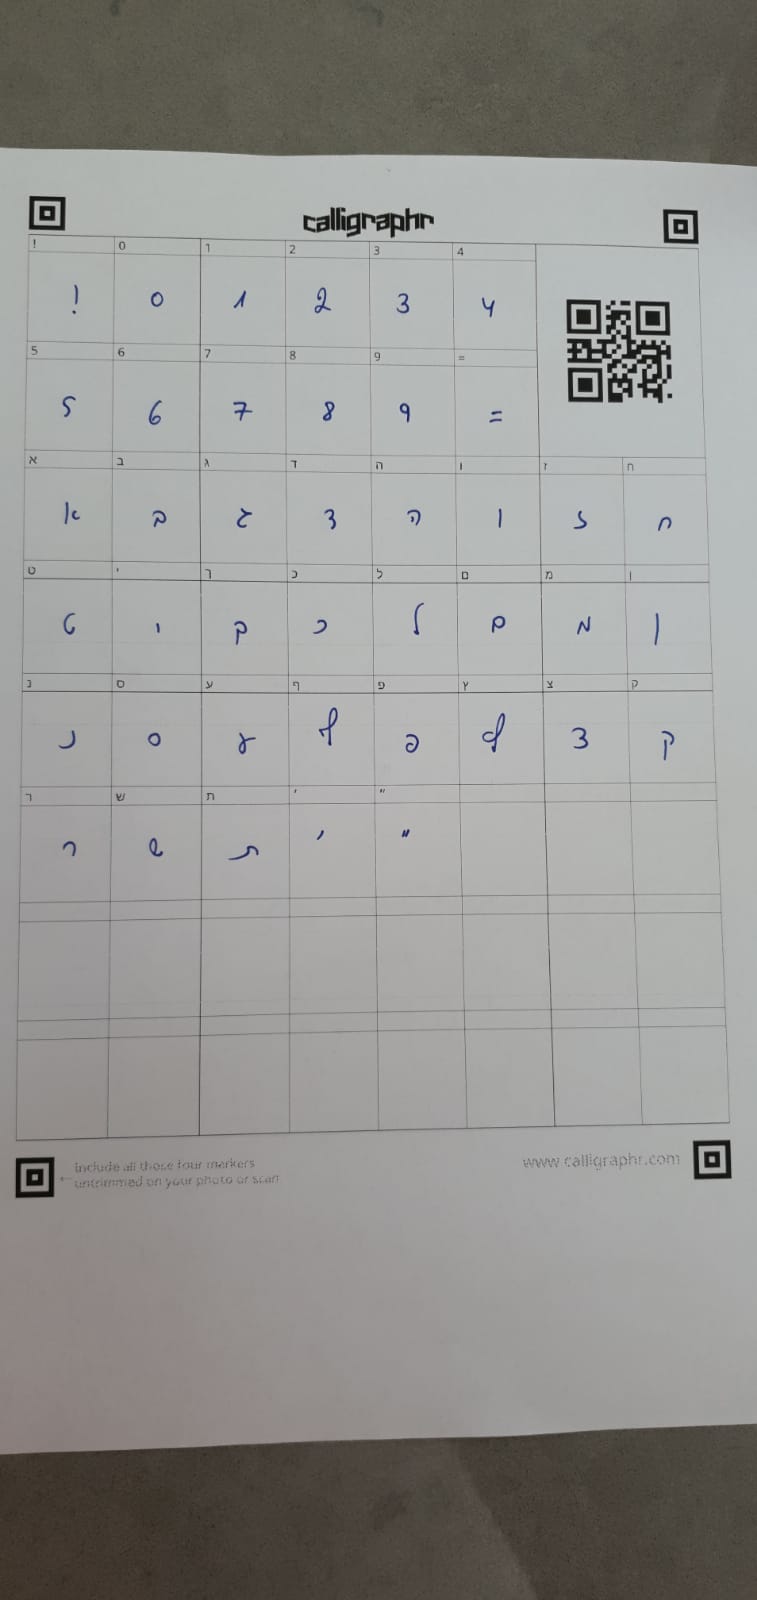 calligraphr
! 0 1 2 3 4
! 0 1 2 3 4
5 6 7 8 9 =
5 6 7 8 9 =
א ב ג ד ה ו ז ח
א ב ג ד ה ו ז ח
ט י ך כ ל ם מ ן
ט י ך כ ל ם מ ן
נ ס ע ף פ ץ צ ק
נ ס ע ף פ ץ צ ק
ר ש ת ׳ ״
ר ש ת ׳ ״
Include all those four markers
← untrimmed on your photo or scan
www.calligraphr.com